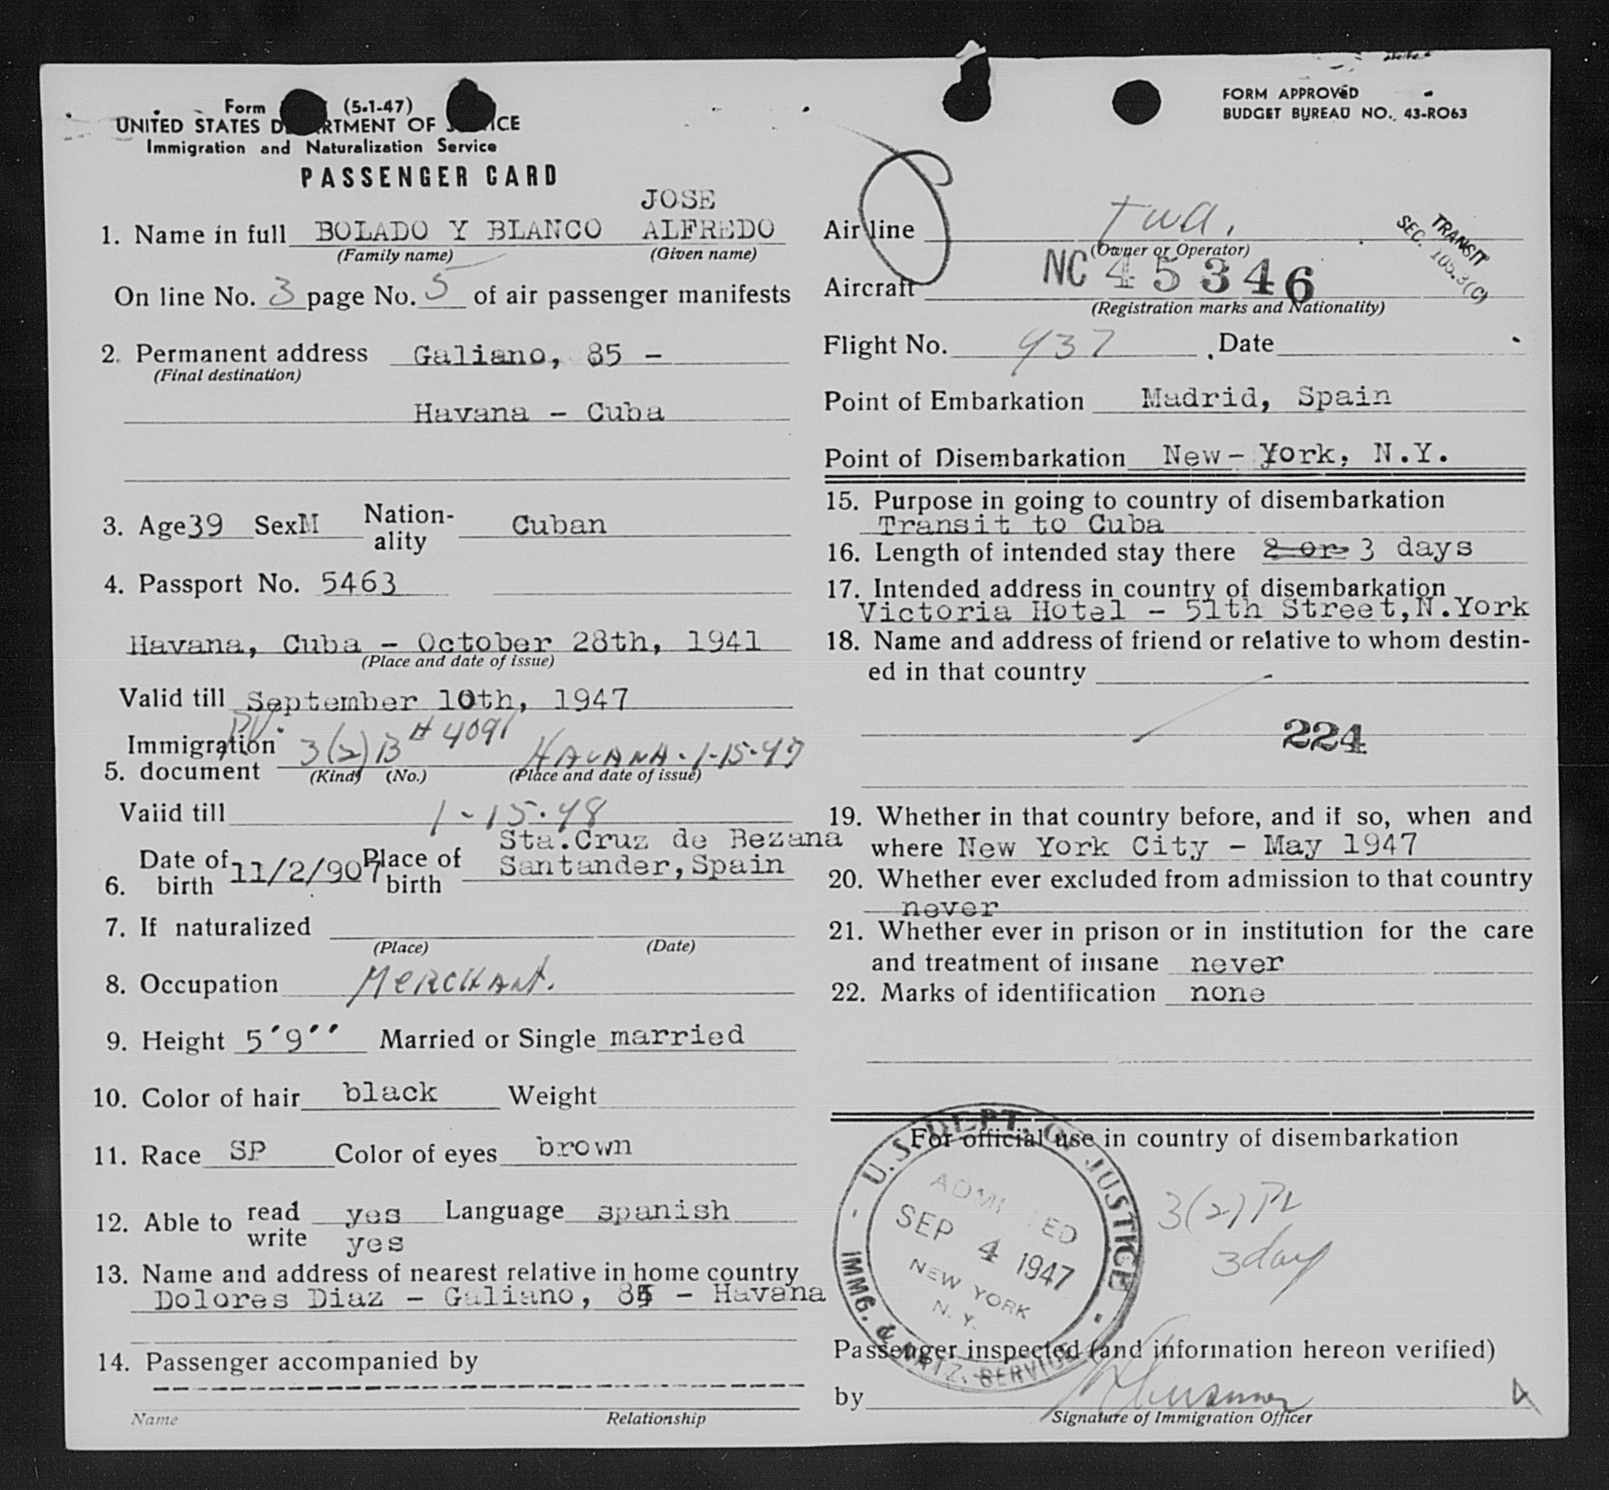 Form (5-1-47)
UNITED STATES DEPARTMENT OF JUSTICE
Immigration and Naturalization Service
PASSENGER CARD
FORM APPROVED
BUDGET BUREAU NO. 43-RO63
JOSE
1. Name in full BOLADO Y BLANCO ALFREDO
(Family name) (Given name)
On line No. 3 page No. 5 of air passenger manifests
2. Permanent address Galiano, 85 -
(Final destination)
Havana - Cuba
3. Age 39 Sex M Nation-ality Cuban
4. Passport No. 5463
Havana, Cuba - October 28th, 1941
(Place and date of issue)
Valid till September 10th, 1947
PV.
Immigration
5. document 3(2)B # 4091 HAVANA. 1-15-47
(Kind) (No.) (Place and date of issue)
Valid till 1-15-48
Sta.Cruz de Bezana
6. Date of birth 11/2/907 Place of birth Santander, Spain
7. If naturalized
(Place) (Date)
8. Occupation MERCHANT.
9. Height 5'9'' Married or Single married
10. Color of hair black Weight
11. Race SP Color of eyes brown
12. Able to read yes Language spanish
write yes
13. Name and address of nearest relative in home country
Dolores Diaz - Galiano, 85 - Havana
14. Passenger accompanied by
Name Relationship
Airline TWA.
(Owner or Operator)
TRANSIT
SEC. 105.3(C)
Aircraft NC 45346
(Registration marks and Nationality)
Flight No. 937 Date
Point of Embarkation Madrid, Spain
Point of Disembarkation New-York, N.Y.
15. Purpose in going to country of disembarkation
Transit to Cuba
16. Length of intended stay there 2 or 3 days
17. Intended address in country of disembarkation
Victoria Hotel - 51th Street, N.York
18. Name and address of friend or relative to whom destin-
ed in that country
224
19. Whether in that country before, and if so, when and
where New York City - May 1947
20. Whether ever excluded from admission to that country
never
21. Whether ever in prison or in institution for the care
and treatment of insane never
22. Marks of identification none
For official use in country of disembarkation
U.S. DEPT. OF JUSTICE
ADMITTED
SEP 4 1947
NEW YORK
N. Y.
IMMG. & NATZ. SERVICE
3(2) PV
3 day
Passenger inspected (and information hereon verified)
by
Signature of Immigration Officer